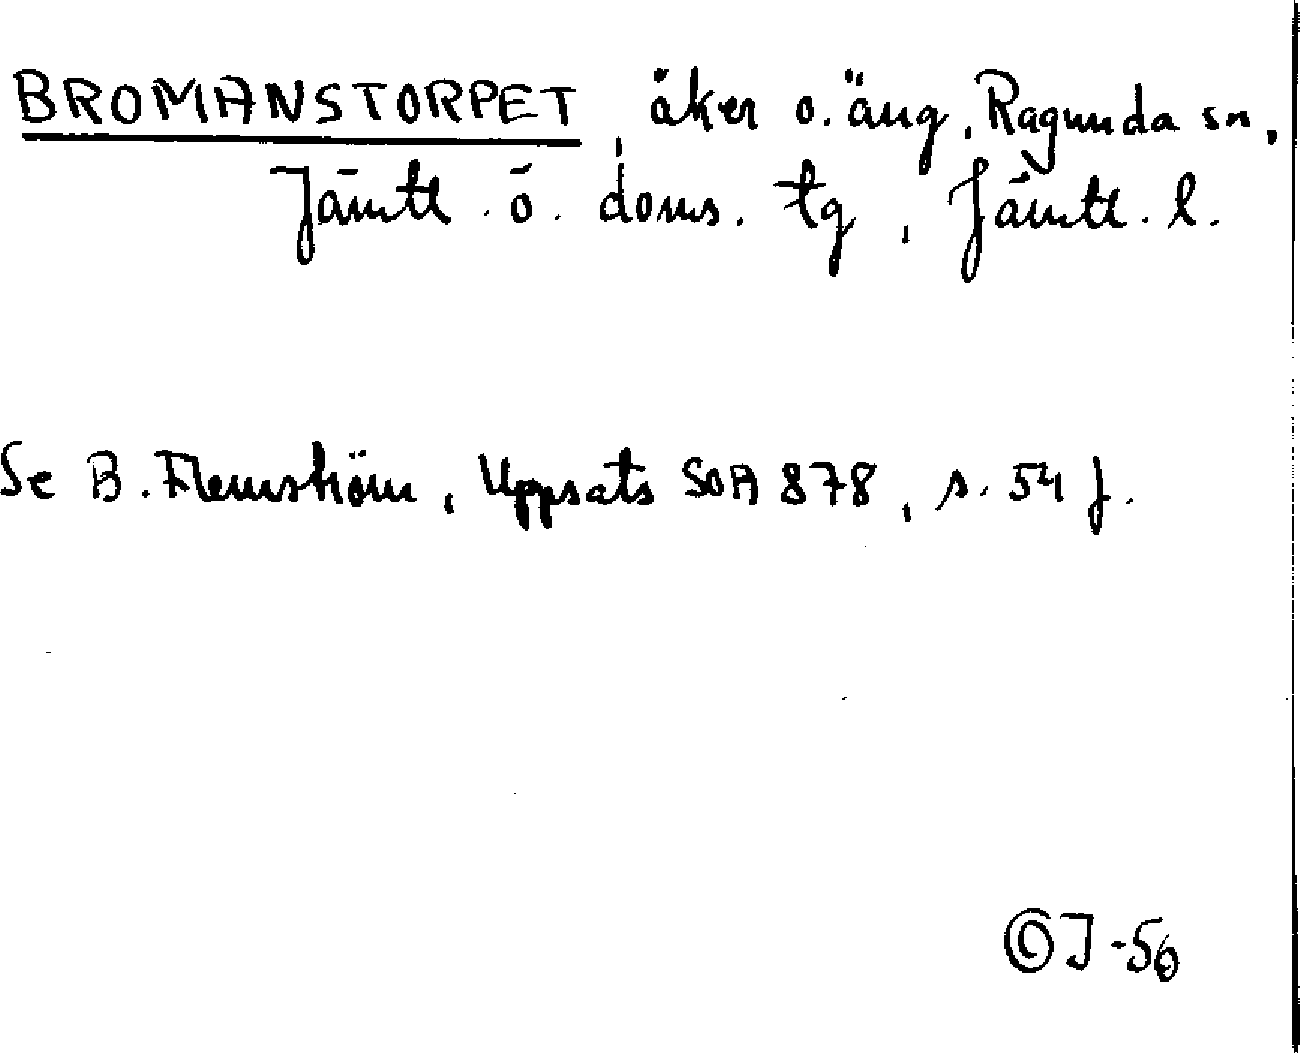 BROMANSTORPET, åker o. äng, Ragunda sn,
Jämtl. ö. doms. tg, Jämtl. l.
Se B. Flemström, Uppsats SOA 878, s. 54 f.
©J-56